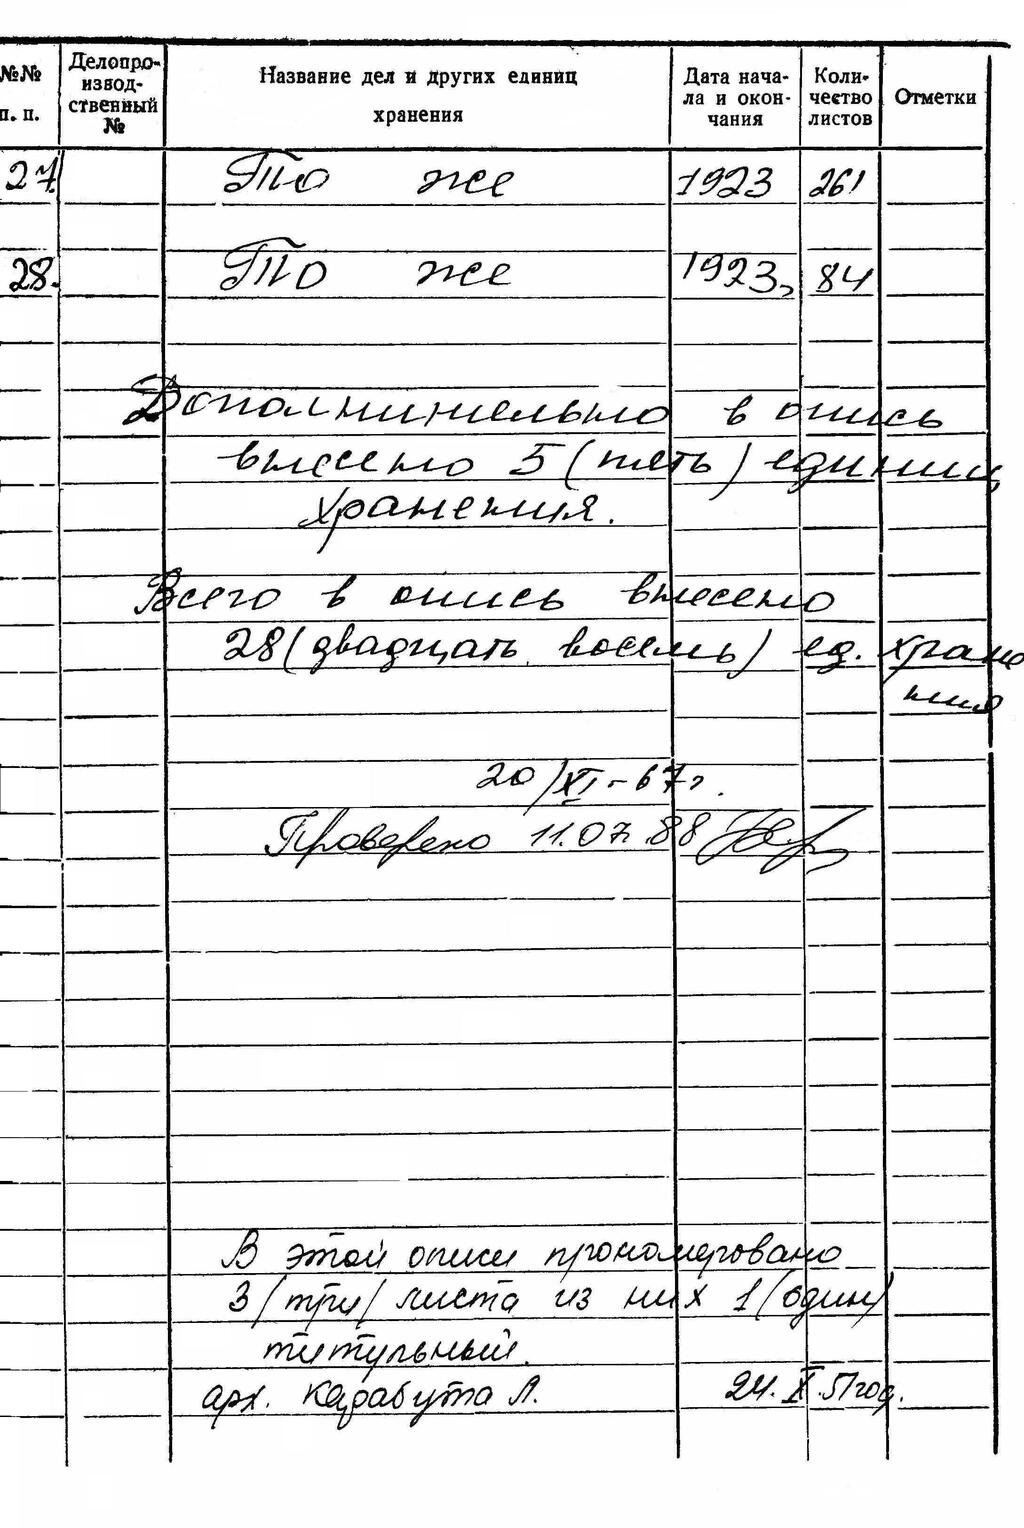 №№ п. п. Делопроизводственный № Название дел и других единиц хранения Дата начала и окончания Количество листов Отметки
27. То же 1923 261
28. То же 1923г 84
Дополнительно в опись
внесено 5 (пять) единиц
хранения.
Всего в опись внесено
28 (двадцать восемь) ед. хране
ния
20/XI-67г.
Проверено 11.07.88
В этой описи прономеровано
3/три/ листа из них 1 (один)
титульный.
арх. Карабута Л. 24. X. 51год.